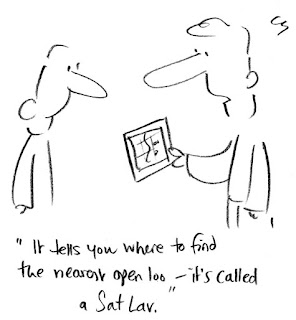 "It tells you where to find
the nearest open loo – it's called
a Sat Lav."